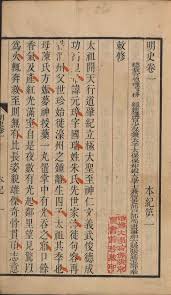 明史卷一 本紀第一
敕修
太祖開天行道肇紀立極大聖至神仁文義武俊德成
功高皇帝諱元璋字國瑞姓朱氏先世家沛徙句容再
徙泗州父世珍始徙濠州之鍾離生四子太祖其季也
母陳氏方娠夢神授藥一丸置掌中有光吞之寤口餘
香氣及產紅光滿室自是夜數有光起鄰里望見驚以
為火輒奔救至則無有比長姿貌雄傑奇骨貫頂志意
本紀